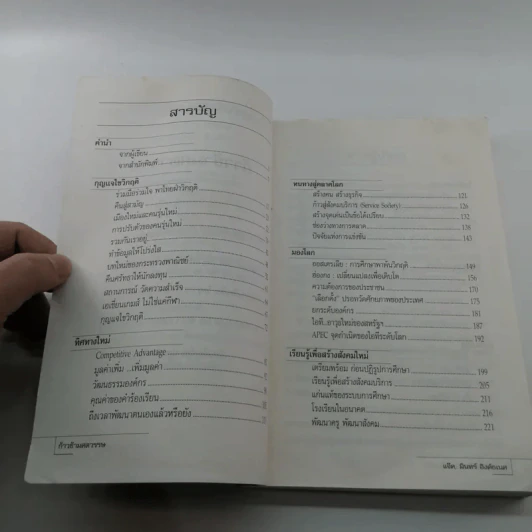 สารบัญ
คำนำ
จากผู้เขียน
จากสำนักพิมพ์
กุญแจไขวิกฤติ
ร่วมมือร่วมใจ พาไทยฝ่าวิกฤติ
คืนสู่สามัญ
เมืองใหม่และคนรุ่นใหม่
การปรับตัวของคนรุ่นใหม่
รวมกันเราอยู่
ทำข้อมูลให้โปร่งใส
บทใหม่ของกระทรวงพาณิชย์
คืนศรัทธาให้นักลงทุน
สถานการณ์ วัดความสำเร็จ
เอเชี่ยนเกมส์ ไม่ใช่แค่กีฬา
กุญแจไขวิกฤติ
ทิศทางใหม่
Competitive Advantage
มูลค่าเพิ่ม ...เพิ่มมูลค่า
วัฒนธรรมองค์กร
คุณค่าของคำร้องเรียน
ถึงเวลาพัฒนาตนเองแล้วหรือยัง
ก้าวข้ามศตวรรษ
หนทางสู่ตลาดโลก
สร้างคน สร้างธุรกิจ 121
ก้าวสู่สังคมบริการ (Service Society) 126
สร้างจุดเด่นเป็นข้อได้เปรียบ 132
ช่องว่างทางการตลาด 138
ปัจจัยแห่งการแข่งขัน 143
มองโลก
ออสเตรเลีย : การศึกษาพาพ้นวิกฤติ 149
ฮ่องกง : เปลี่ยนแปลงเพื่อเติบโต 156
ความต้องการของประชาชน 170
"เลือกตั้ง" ปรอทวัดศักยภาพของประเทศ 175
ยกระดับองค์กร 181
ไอที..อาวุธใหม่ของสหรัฐฯ 187
APEC จุดกำเนิดของไอทีระดับโลก 192
เรียนรู้เพื่อสร้างสังคมใหม่
เตรียมพร้อม ก่อนปฏิรูปการศึกษา 199
เรียนรู้เพื่อสร้างสังคมบริการ 205
แก่นแท้ของระบบการศึกษา 211
โรงเรียนในอนาคต 216
พัฒนาครู พัฒนาสังคม 221